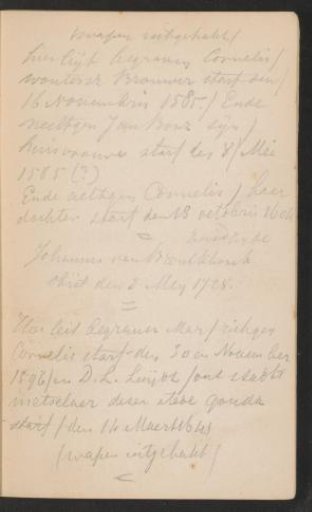 (wapen uitgehakt)
hier lijt begraven Cornelis /
woutersz Brouwer starf den /
16 Novembris 1585. / Ende
neeltgen Jan Bouz sijn /
huisvrouwe starf den 8 / Mei
1585 (?)
Ende neltgen Cornelis / haer
dochter starf den 18 octobris
Johannes van
obiit den 2 Mey 1728.
Hier leit begraven Mar / richgen
Cornelis starf den 30 en Novem ber
en D. L. / ons stadts
metselaer deser stede Gouda
starf / den 14 Maert 1641
(wapen uitgehakt)